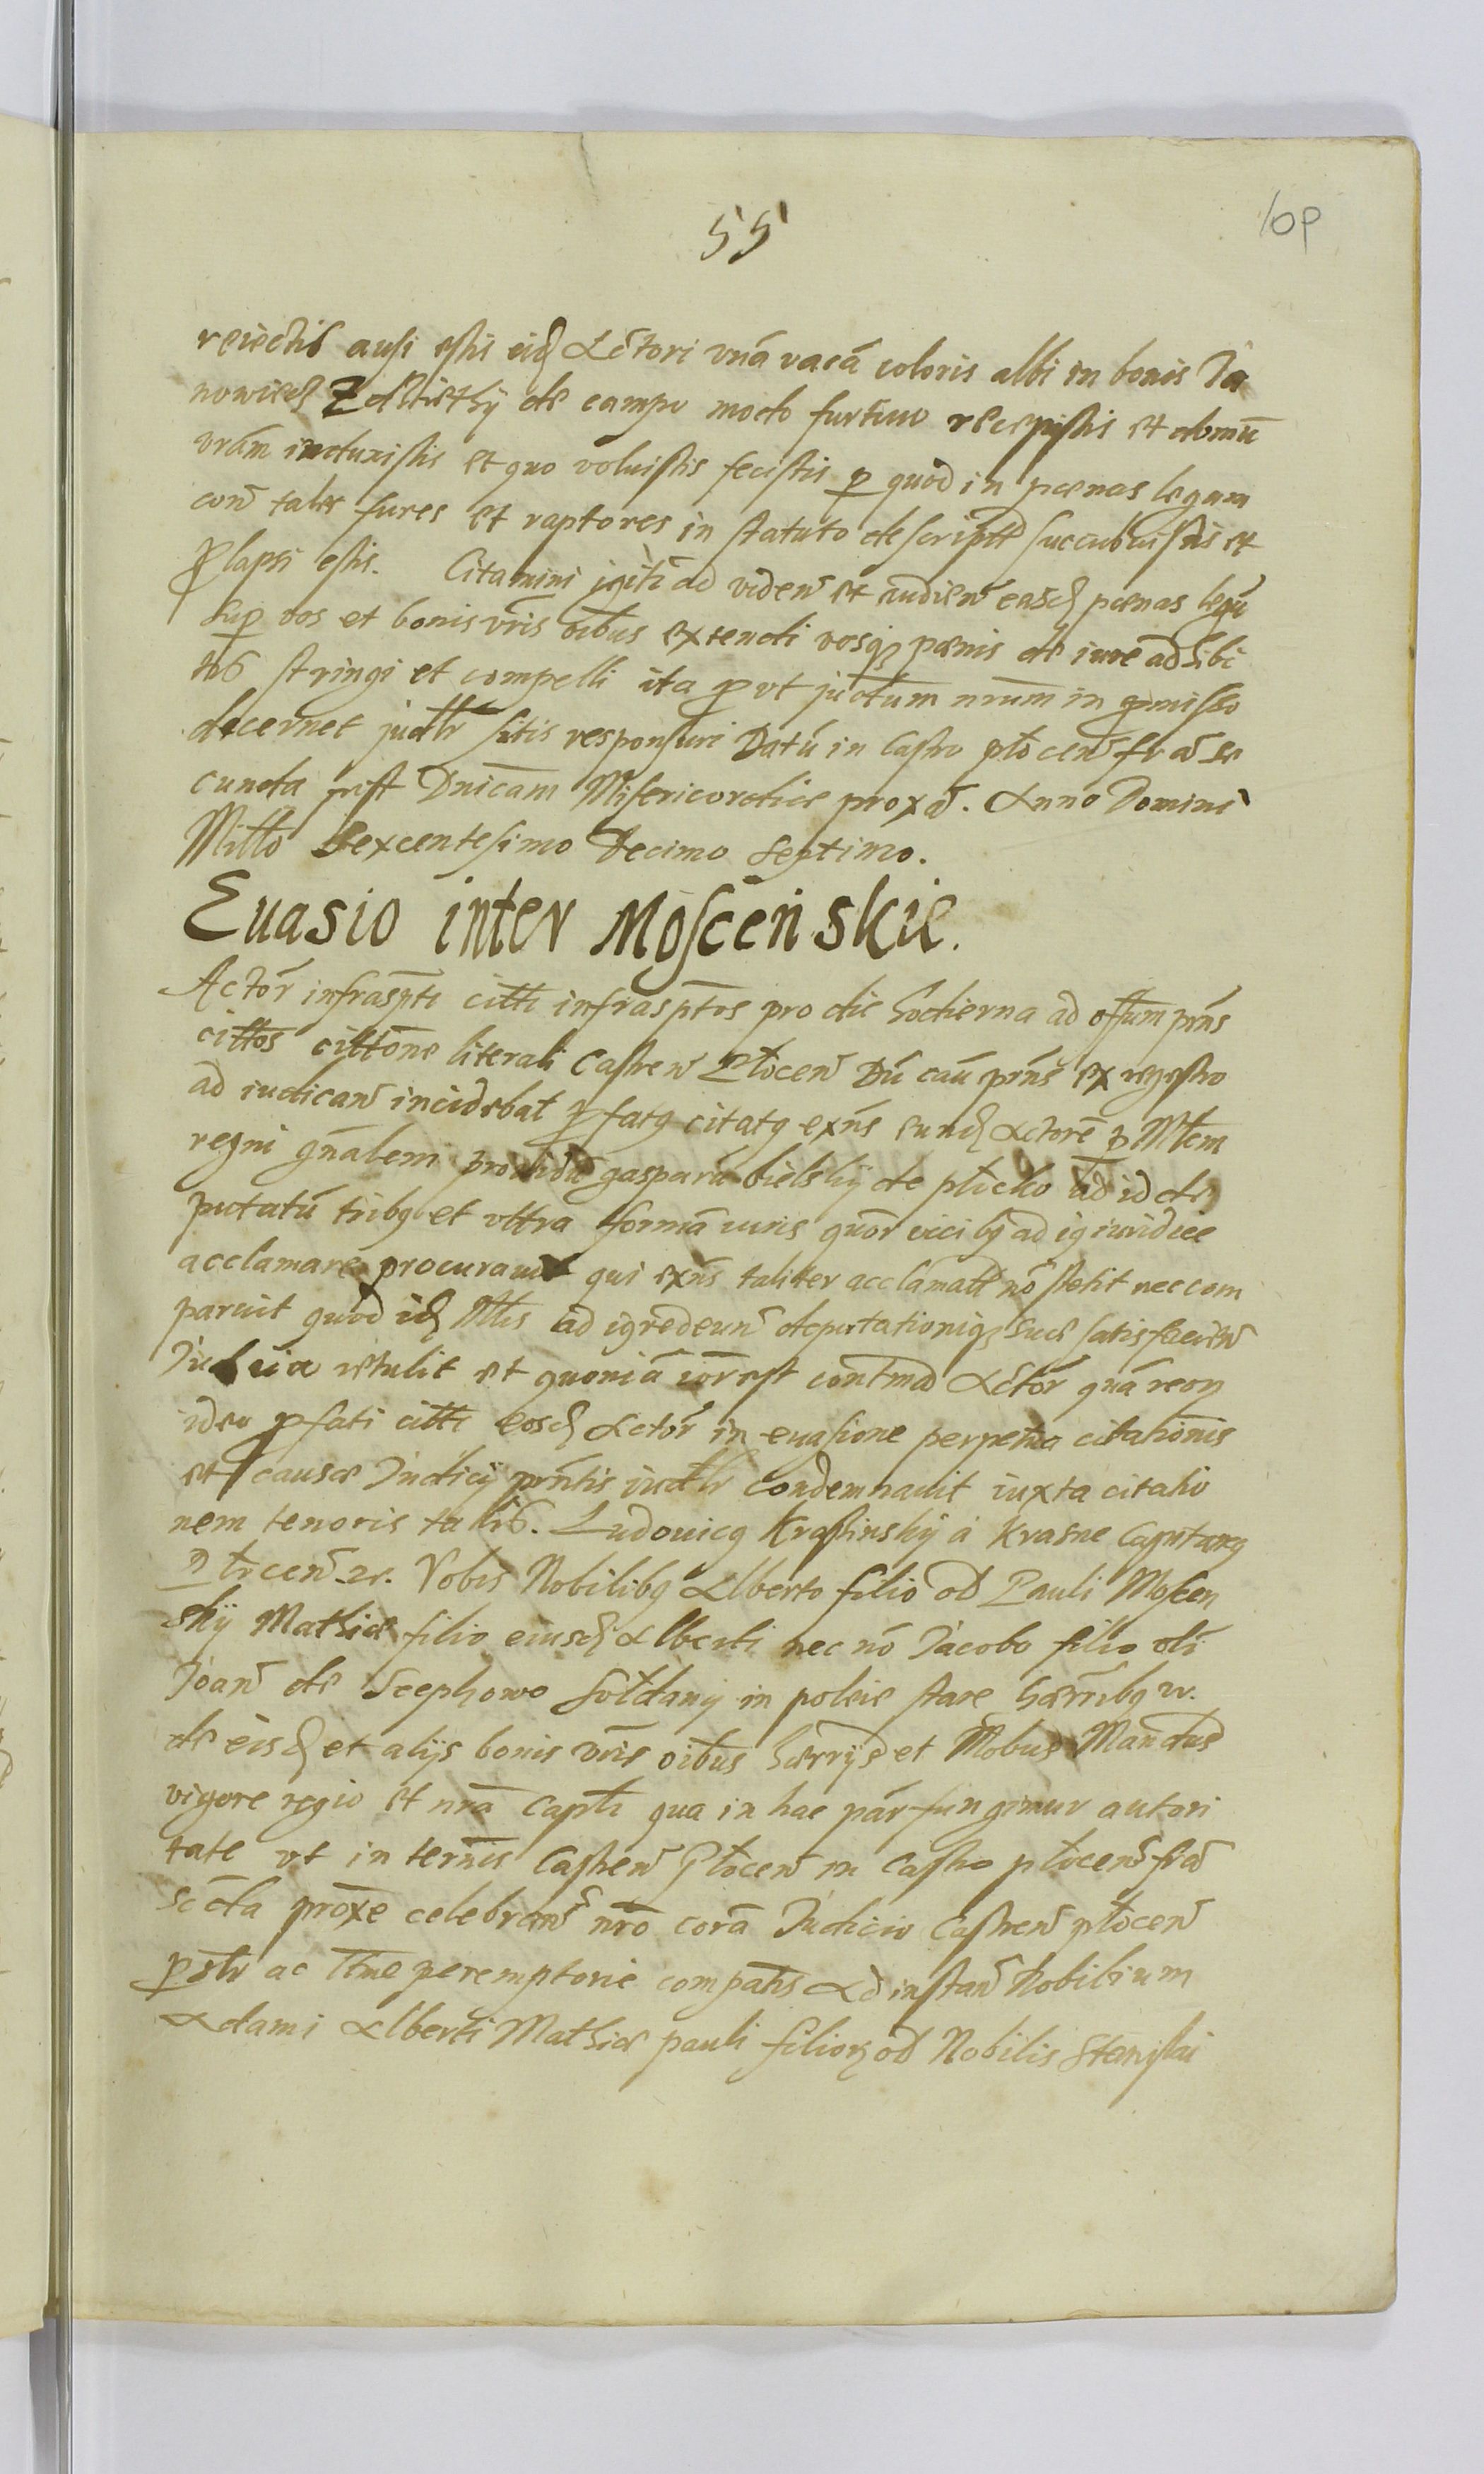 55
109
reiectis ausi estis eid Actori vnā vacā coloris albi in bonis Ja
nowiecz Zdziethÿ de campo modo furtiuo recepistis et domū
vrām induxistis et quo voluistis fecistis p quod in pœnas legum
con tales fures et raptores in statuto descriptas succubuistis et
plapsi estis. Citamini igitr ad viden et audien easd pœnas legū
sup vos et bonis vris oibus extendi vosq pœnis de iure ad hibi
tis stringi et compelli ita p vt judtum nrum in pmisso
decernet judtr sitis responsuri Datū in Castro plocen fra se
cunda post Dnicam Misericordiæ proxa. Anno Domini
Millo Sexcentesimo Decimo Septimo.
Euasio inter Mosceńskie.
Actor infraspti citti infrasptos pro die hodierna ad offum pns
cittos cittone literali Castren Plocen Dū cau pns ex regestro
ad iudican incidebat pfatq citatq exns eund Actorē p Mlem
regni gnalem prouidū gasparū bielskÿ de plicko ad id de
putatū tribq et vltra formā iuris quor vicibq ad iq iuridice
acclamare procurauit qui exns taliter acclamatq nō stetit nec com
paruit quod id Mlis ad iq redeun deputationiq suæ satisfacien
Judicia retulit et quoniā ior est contmad Actor quā reor
ideo pfati citti eosd Actor in euasione perpetua citationis
et causæ Judicij pntis iudtr condemnauit iuxta citatio
nem tenoris talis. Ludouicq Krasinskÿ à Krasne Capntanq
Plocen &c. Vobis Nobilibq Alberto filio od Pauli Moscen
skÿ Mathiæ filio eiusd Alberti nec nō Jacobo filio oli
Joan de Scephowo Soldanÿ in poleie stare hærribq &c.
de eisd et alijs bonis vris oibus hærrijs et Mobus Mandas
vigore regio et nrā Capli qua in hac par fungimur autori
tate vt in termis Castren Plocen in Castro plocen fra
scda proxe celebran nro corā Judicio Castren plocen
pstr ac ttme peremptorie compatis Ad instan Nobilium
Adami Alberti Mathiæ pauli filior od Nobilis Stanislai